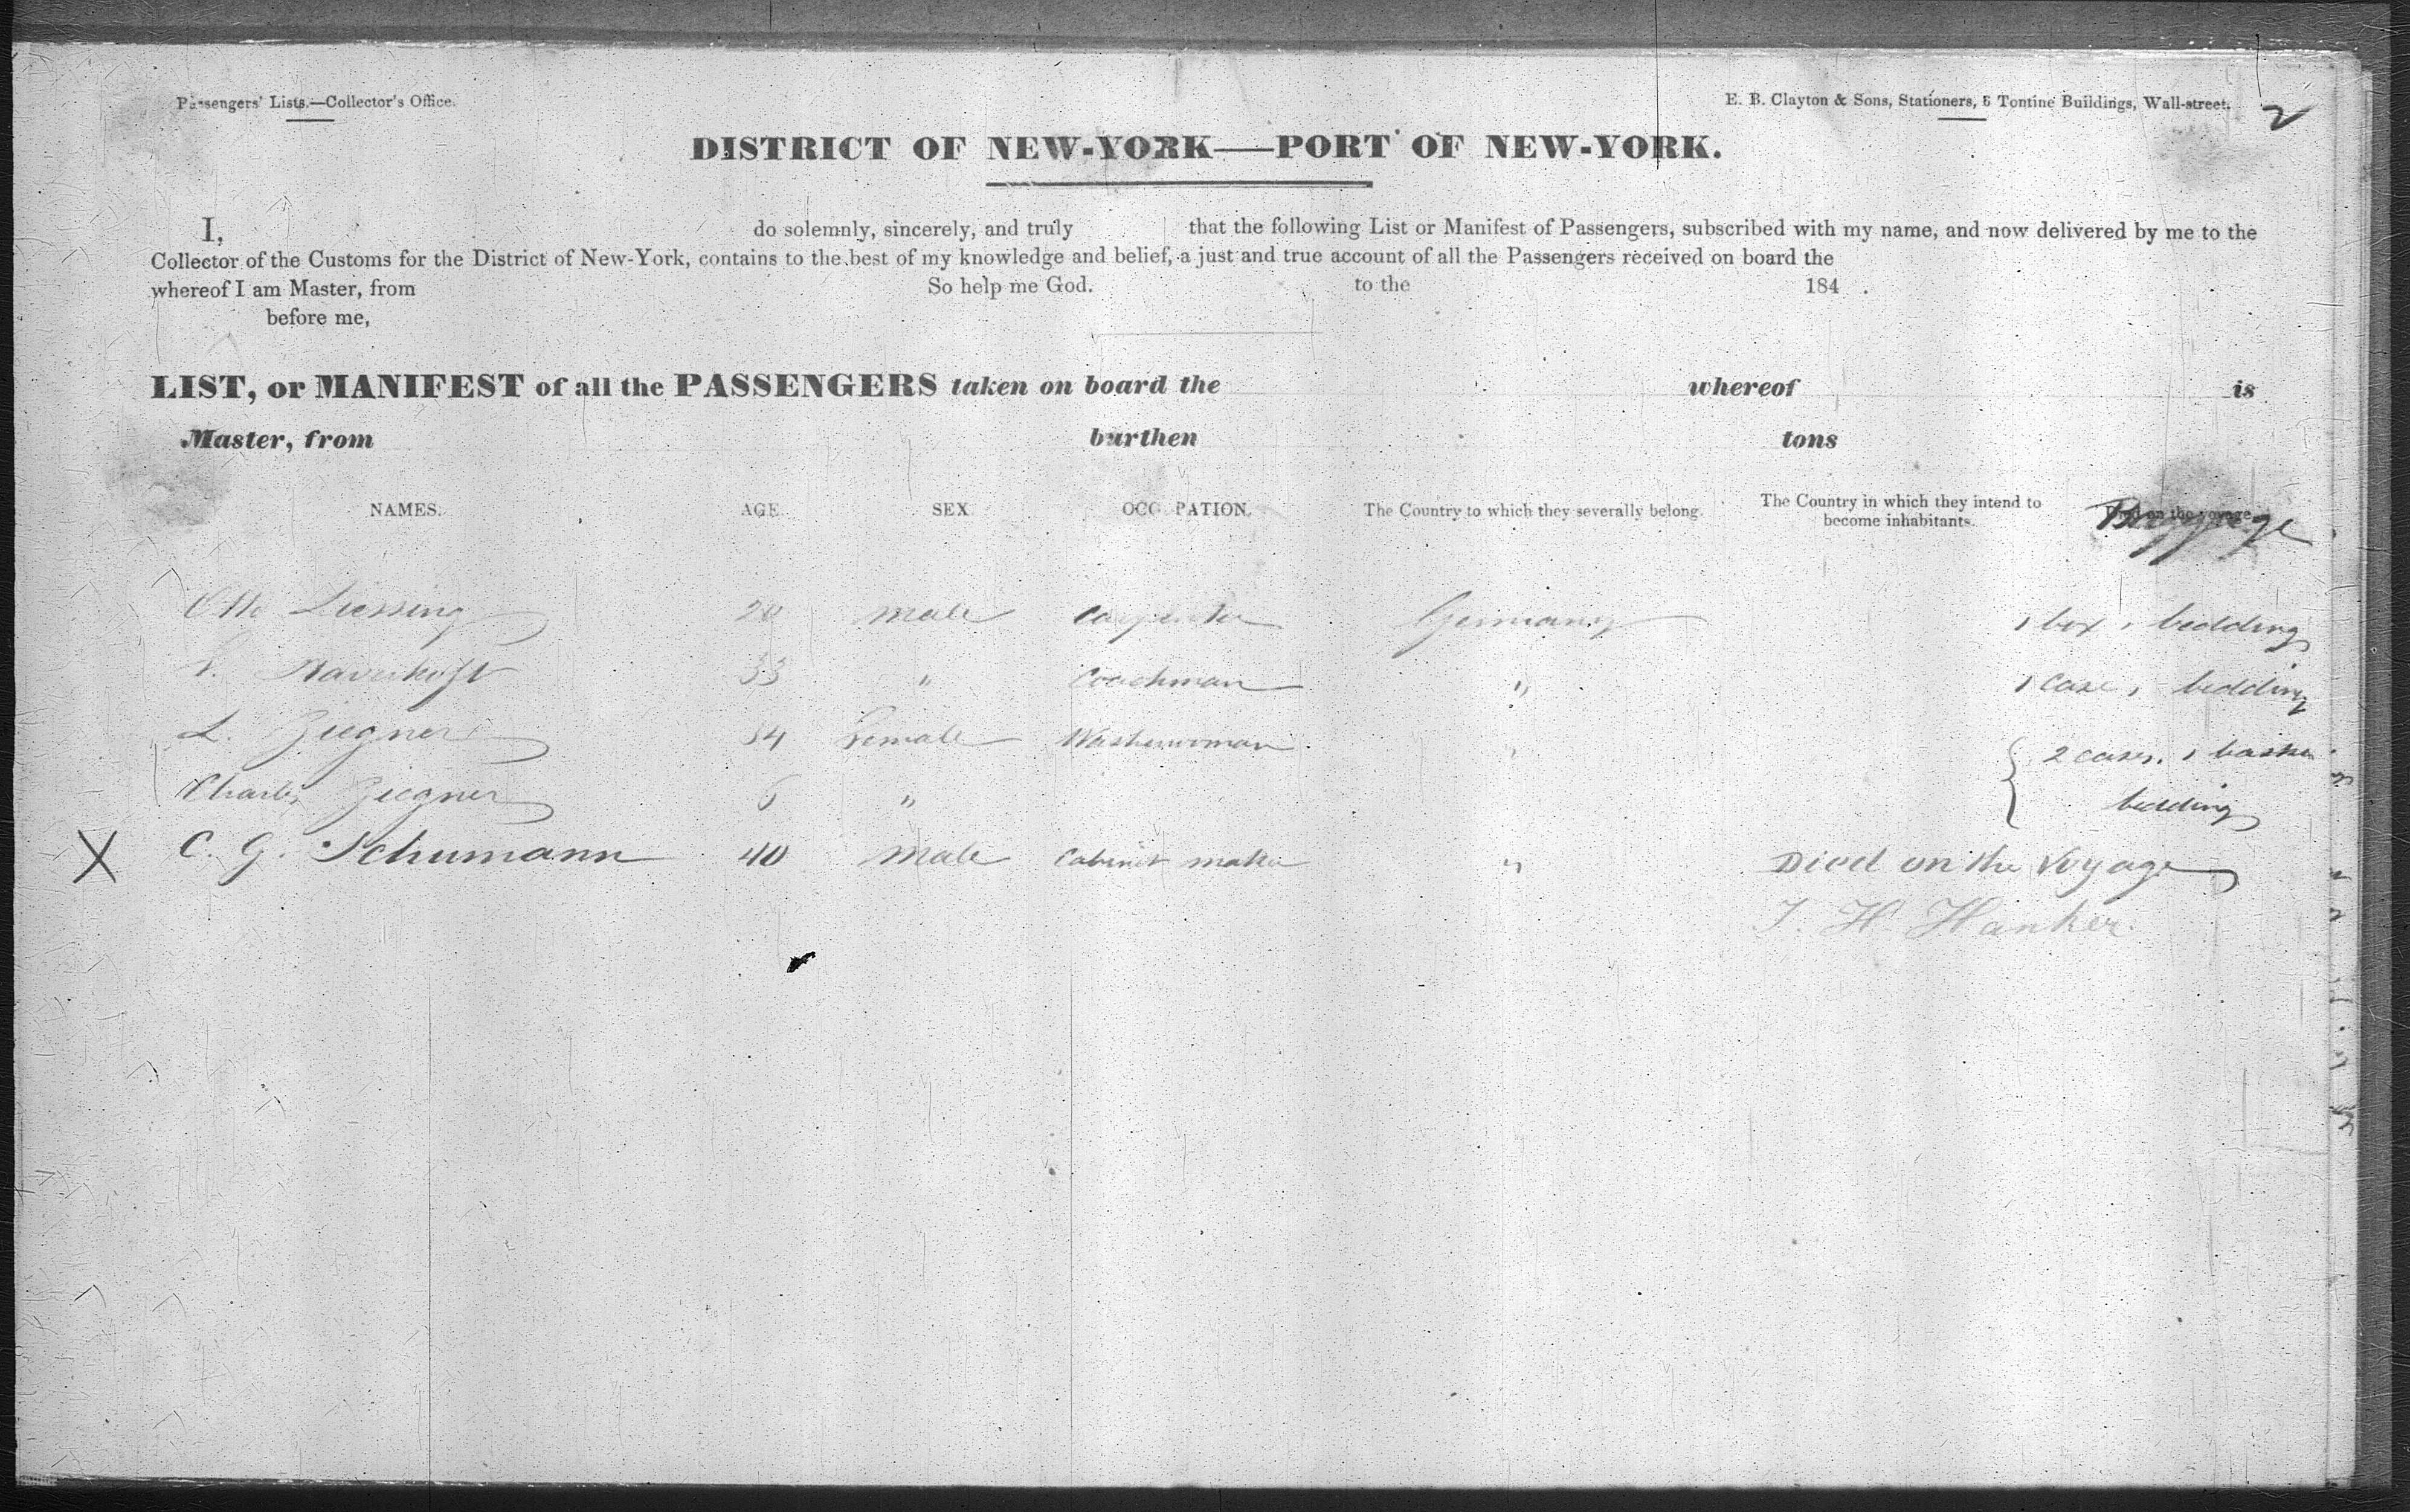 Passengers' Lists.—Collector's Office.
E. B. Clayton & Sons, Stationers, 5 Tontine Buildings, Wall-street.
2
DISTRICT OF NEW-YORK—PORT OF NEW-YORK.
I, do solemnly, sincerely, and truly that the following List or Manifest of Passengers, subscribed with my name, and now delivered by me to the
Collector of the Customs for the District of New-York, contains to the best of my knowledge and belief, a just and true account of all the Passengers received on board the
whereof I am Master, from So help me God. to the 184 .
before me,
LIST, or MANIFEST of all the PASSENGERS taken on board the whereof is
Master, from burthen tons
NAMES. AGE. SEX OCCUPATION. The Country to which they severally belong. The Country in which they intend to become inhabitants. Died on the voyage. Baggage
Otto Liessing 20 male Carpenter Germany 1 box, bedding
33 " Coachman " 1 Case, bedding
L. Ziegner 34 Female Washerwoman " 2 cases, 1 basket
Charles Ziegner 6 " bedding
X C. G. Schumann 40 male Cabinet maker " Died on the Voyage
H. Hanker.